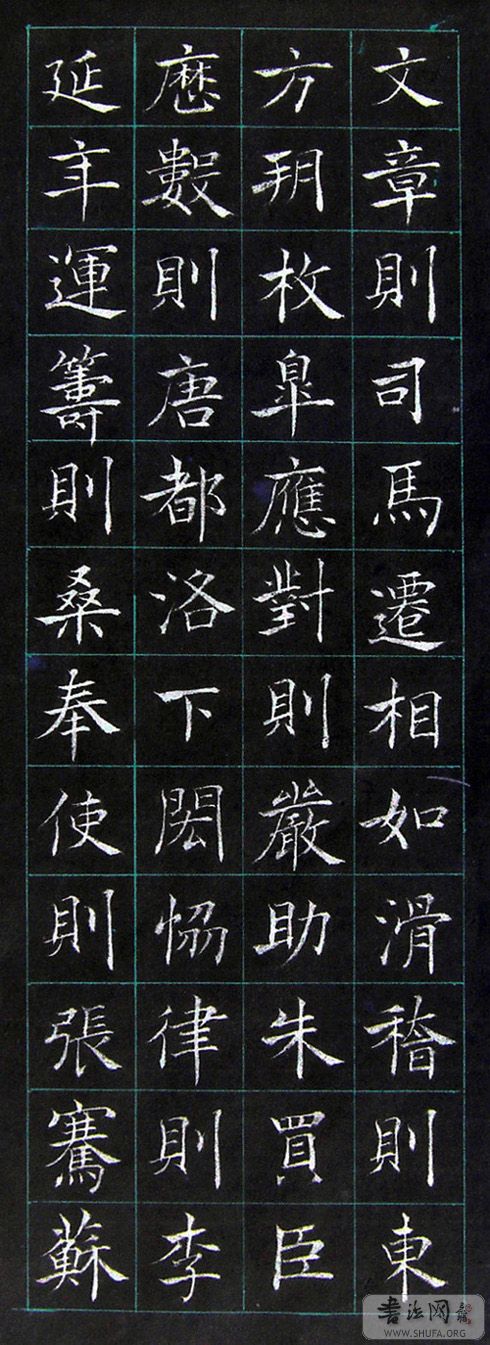 文章則司馬遷相如滑稽則東
方朔枚皐應對則嚴助朱買臣
厯數則唐都洛下閎恊律則李
延年運籌則桑奉使則張騫蘇
書法网
WWW.SHUFA.ORG